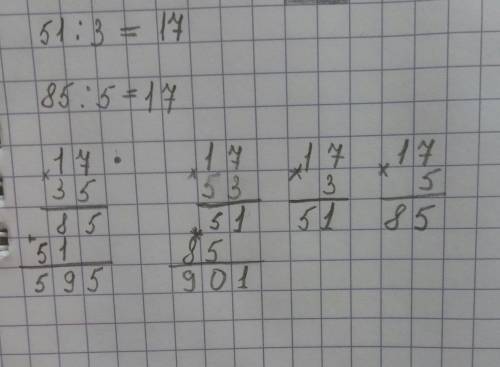 51 : 3 = 17
85 : 5 = 17
×17
35
85
+51
595
×17
53
51
×85
901
×17
3
51
×17
5
85